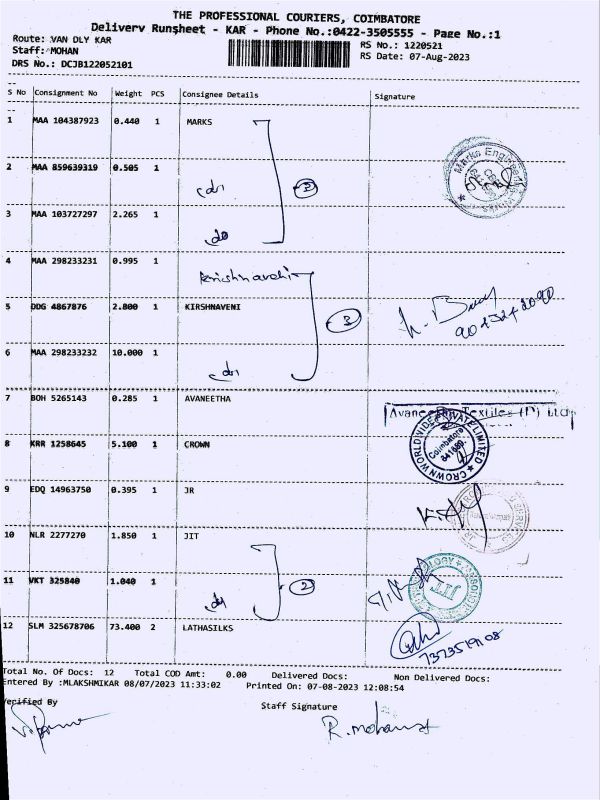 THE PROFESSIONAL COURIERS, COIMBATORE
Delivery Runsheet - KAR - Phone No.:0422-3505555 - Page No.:1
Route: VAN DLY KAR
RS No.: 1220521
Staff: MOHAN
RS Date: 07-Aug-2023
DRS No.: DCJB122052101
S No Consignment No Weight PCS Consignee Details Signature
1 MAA 104387923 0.440 1 MARKS
2 MAA 859639319 0.505 1
Marks Engineering
3 MAA 103727297 2.265 1
do
4 MAA 298233231 0.995 1
5 DDG 4867876 2.800 1 KIRSHNAVENI
3
6 MAA 298233232 10.000 1
7 BOH 5265143 0.285 1 AVANEETHA
Avaneetha Textiles (P) Ltd
8 KRR 1258645 5.100 1 CROWN
CROWN WORLDWIDE PRIVATE LIMITED
Coimbatore
9 EDQ 14963750 0.395 1 JR
10 NLR 2277270 1.850 1 JIT
11 VKT 325840 1.040 1
2
JIT
12 SLM 325678706 73.400 2 LATHASILKS
Total No. Of Docs: 12 Total COD Amt: 0.00 Delivered Docs: Non Delivered Docs:
Entered By :MLAKSHMIKAR 08/07/2023 11:33:02 Printed On: 07-08-2023 12:08:54
Verified By
Staff Signature
R. mohan